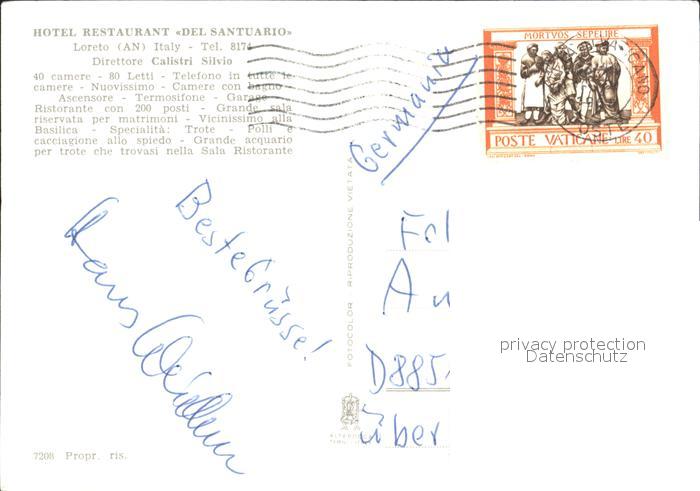 HOTEL RESTAURANT «DEL SANTUARIO»
Loreto (AN) Italy - Tel. 8174
Direttore Calistri Silvio
40 camere - 80 Letti - Telefono in tutte le
camere - Nuovissimo - Camere con bagno
Ascensore - Termosifone - Garage -
Ristorante con 200 posti - Grande sala
riservata per matrimoni - Vicinissimo alla
Basilica - Specialità: Trote - Polli e
cacciagione allo spiedo - Grande acquario
per trote che trovasi nella Sala Ristorante
MORTVOS SEPELIRE
POSTE VATICANE LIRE 40
Germania
Beste Grüsse!
Hans
FOTOCOLOR RIPRODUZIONE VIETATA
Fel
An
D885
Über
privacy protection
Datenschutz
7208 Propr. ris.